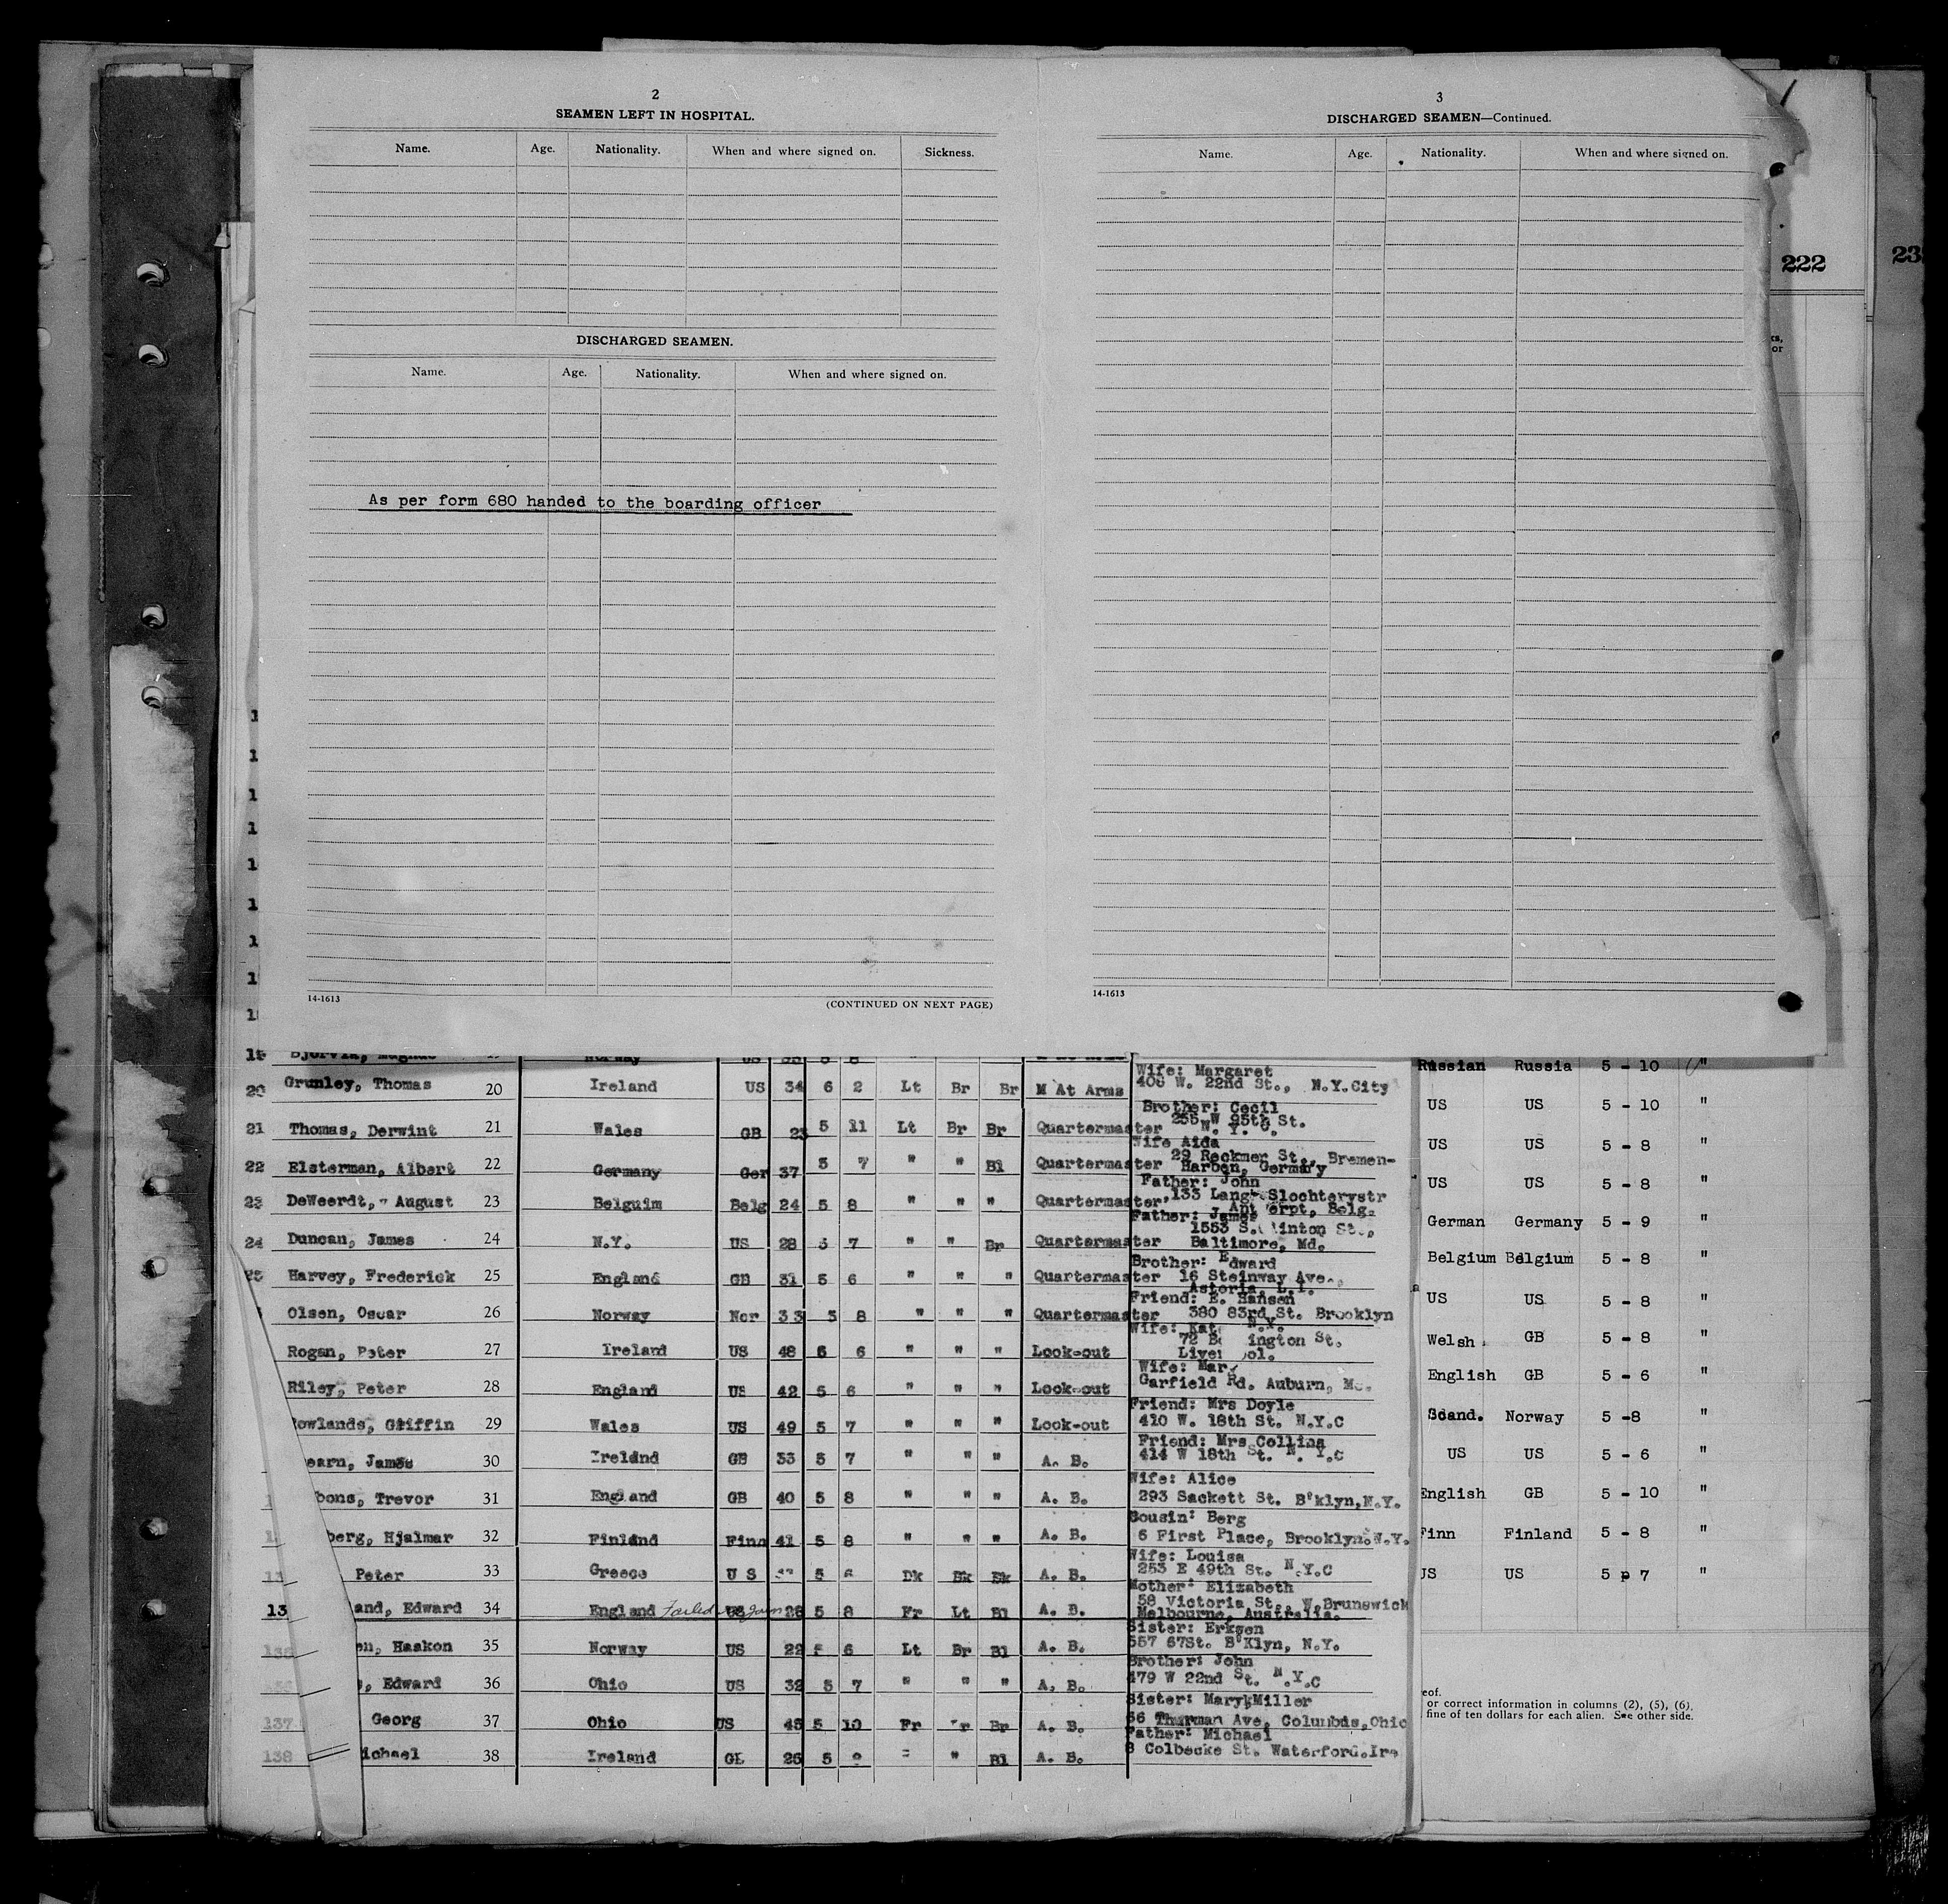 2
SEAMEN LEFT IN HOSPITAL.
Name. Age. Nationality. When and where signed on. Sickness.
DISCHARGED SEAMEN.
Name. Age. Nationality. When and where signed on.
As per form 680 handed to the boarding officer
14-1613
(CONTINUED ON NEXT PAGE)
3
DISCHARGED SEAMEN—Continued.
Name. Age. Nationality. When and where signed on.
14-1613
222
23
or
20 Grunley, Thomas 20 Ireland US 34 6 2 Lt Br Br M At Arms Wife: Margaret
406 W. 22nd St., N.Y.City
21 Thomas, Derwint 21 Wales GB 5 11 Lt Br Br Quartermaster Brother: Cecil
255 W 95th St.
22 Elsterman, Albert 22 Germany Ger 37 5 7 " " Bl Quartermaster Wife Aida
29 Reckmer St., Bremen-
Harben, Germany
23 DeWeerdt, August 23 Belguim Belg 24 5 8 " " " Quartermaster Father: John
133 Lang Slochterystr
24 Duncan, James 24 N.Y. US 28 5 7 " " Br Quartermaster Father: James
1553 S. inton St.,
Baltimore, Md.
25 Harvey, Frederick 25 England GB 31 5 6 " " " Quartermaster Brother: Edward
16 Steinway Ave.,
Astoria L.I.
Olsen, Oscar 26 Norway Nor 33 5 8 " " " Quartermaster Friend: E. Hansen
380 83rd St. Brooklyn
N.Y.
Rogan, Peter 27 Ireland US 48 5 6 " " " Look-out Wife: Kat
72 B ington St.
Live ol.
Riley, Peter 28 England US 42 5 6 " " " Look-out Wife: Mar
Garfield Rd. Auburn,
owlands, Griffin 29 Wales US 49 5 7 " " " Look-out Friend: Mrs Doyle
410 W. 18th St. N.Y.C
earn, James 30 Ireland GB 33 5 7 " " " A. B. Friend: Mrs Collins
414 W 18th St. N. Y.C
bons, Trevor 31 England GB 40 5 8 " " " A. B. Wife: Alice
293 Sackett St. B'klyn,N.Y.
berg, Hjalmar 32 Finland Finn 41 5 8 " " " A. B. Cousin: Berg
6 First Place, Brooklyn.N.Y.
Peter 33 Greece U S 5 6 Dk Bk Bk A. B. Wife: Louisa
253 E 49th St. N.Y.C
13 and, Edward 34 England Failed to join US 28 5 8 Fr Lt Bl A. B. Mother: Elizabeth
58 Victoria St., W.Brunswick
Melbourne, Australia.
en, Haakon 35 Norway US 22 5 6 Lt Br Bl A. B. Sister: Erksen
557 67St. B'Klyn, N.Y.
, Edward 36 Ohio US 32 5 7 " " " A. B. Brother: John
479 W 22nd St. N.Y.C
137 Georg 37 Ohio US 45 5 10 Fr Br A. B. Sister: Mary Miller
66 Thurman Ave, Columbus,Ohio
138 ichael 38 Ireland 26 5 " Bl A. B. Father: Michael
8 Colbecke St. Waterford.Ire
Russian Russia 5 - 10
US US 5 - 10 "
US US 5 - 8 "
US US 5 - 8 "
German Germany 5 - 9 "
Belgium Belgium 5 - 8 "
US US 5 - 8 "
Welsh GB 5 - 8 "
English GB 5 - 6 "
Scand. Norway 5 -8 "
US US 5 - 6 "
English GB 5 - 10 "
Finn Finland 5 - 8 "
US US 5 p 7 "
eof.
or correct information in columns (2), (5), (6),
fine of ten dollars for each alien. See other side.